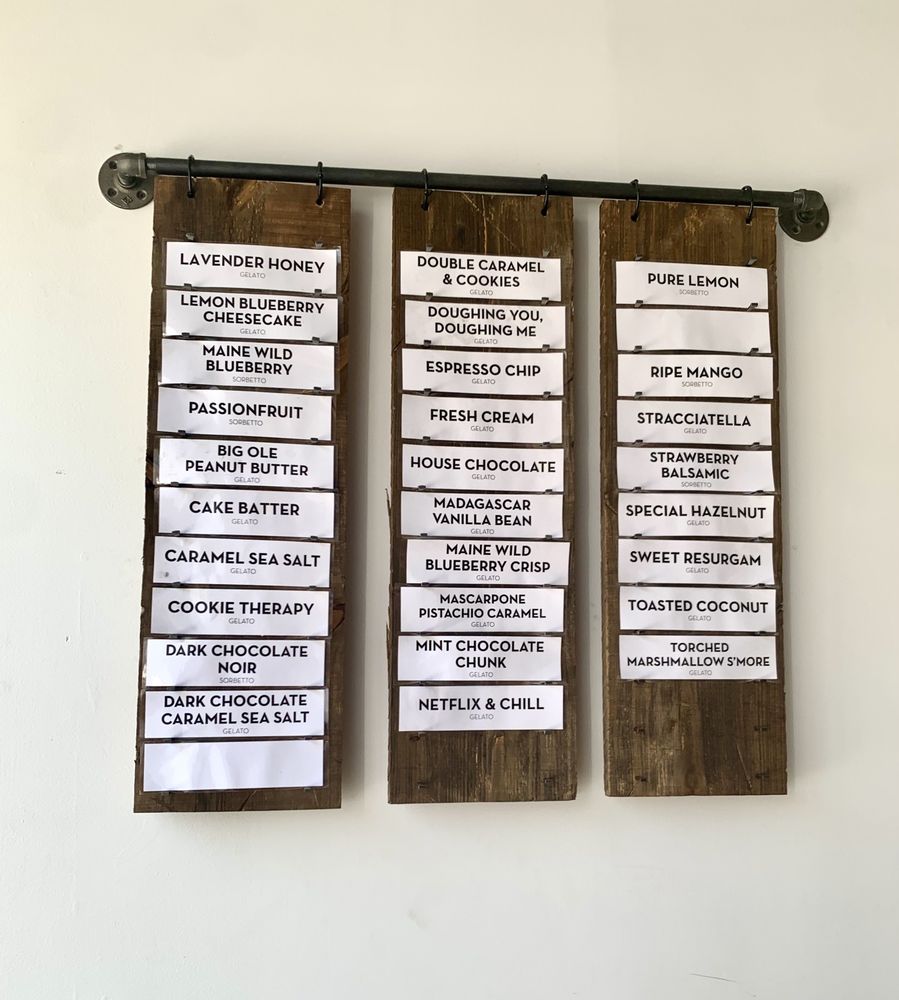 LAVENDER HONEY
GELATO
LEMON BLUEBERRY
CHEESECAKE
GELATO
MAINE WILD
BLUEBERRY
SORBETTO
PASSIONFRUIT
SORBETTO
BIG OLE
PEANUT BUTTER
GELATO
CAKE BATTER
GELATO
CARAMEL SEA SALT
GELATO
COOKIE THERAPY
GELATO
DARK CHOCOLATE
NOIR
SORBETTO
DARK CHOCOLATE
CARAMEL SEA SALT
GELATO
DOUBLE CARAMEL
& COOKIES
GELATO
DOUGHING YOU,
DOUGHING ME
GELATO
ESPRESSO CHIP
GELATO
FRESH CREAM
GELATO
HOUSE CHOCOLATE
GELATO
MADAGASCAR
VANILLA BEAN
GELATO
MAINE WILD
BLUEBERRY CRISP
GELATO
MASCARPONE
PISTACHIO CARAMEL
GELATO
MINT CHOCOLATE
CHUNK
GELATO
NETFLIX & CHILL
GELATO
PURE LEMON
SORBETTO
RIPE MANGO
SORBETTO
STRACCIATELLA
GELATO
STRAWBERRY
BALSAMIC
SORBETTO
SPECIAL HAZELNUT
GELATO
SWEET RESURGAM
GELATO
TOASTED COCONUT
GELATO
TORCHED
MARSHMALLOW S'MORE
GELATO